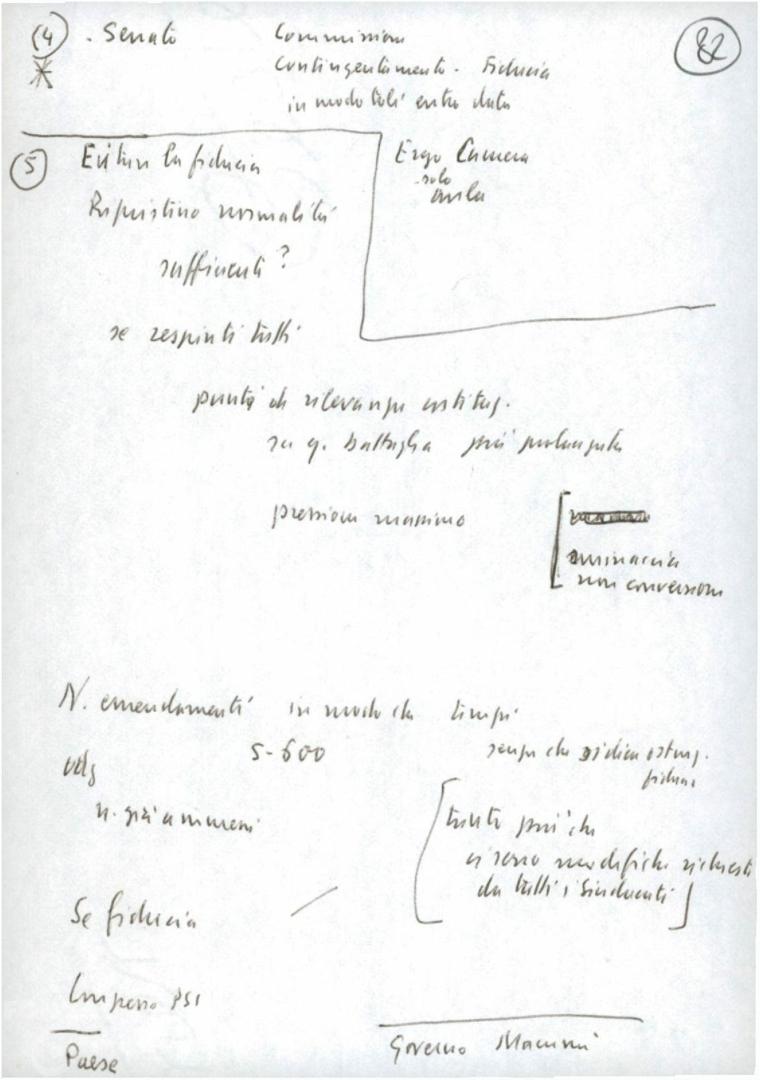 (4) . Senato Commissione
82
Contingentamento - Fiducia
in modo tale entro data
(5) Evitare la fiducia
Ergo Camera
solo
aula
Ripristino normalità
sufficienti?
se respinti tutti
punti di rilevanza costituz.
su q. battaglia più prolungata
pressione massima
minaccia
non conversione
N. emendamenti in modo che tempi
5-600
senza che si dica ostruz.
fiducia
odg
n. già
tanto più che
ci sono modifiche richieste
da tutti i Sindacati
Se fiducia
Impegno PSI
Paese
Governo